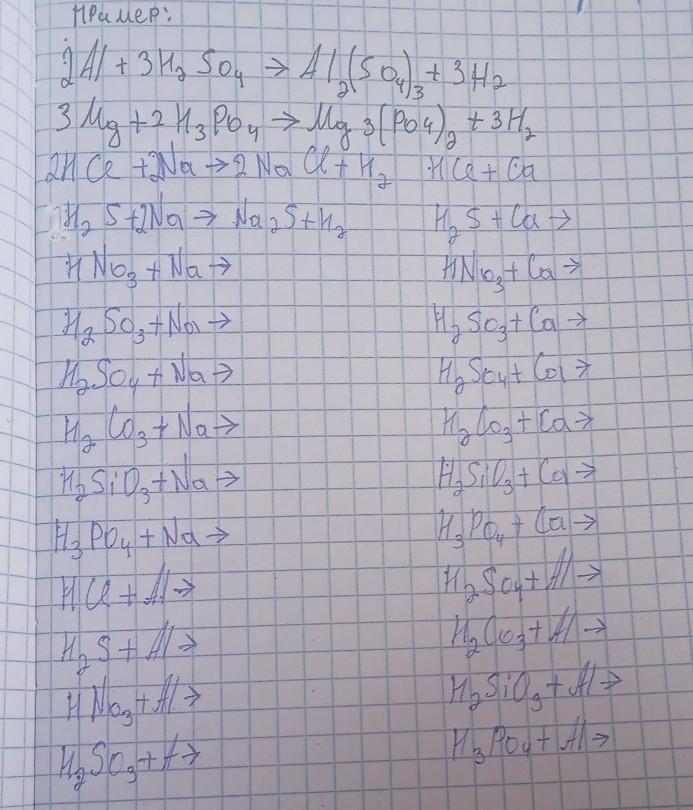 Пример:
2Al + 3H2SO4 → Al2(SO4)3 + 3H2
3Mg + 2H3PO4 → Mg3(PO4)2 + 3H2
2HCl + 2Na → 2NaCl + H2 HCl + Ca
H2S + 2Na → Na2S + H2 H2S + Ca →
HNO3 + Na → HNO3 + Ca →
H2SO3 + Na → H2SO3 + Ca →
H2SO4 + Na → H2SO4 + Ca →
H2CO3 + Na → H2CO3 + Ca →
H2SiO3 + Na → H2SiO3 + Ca →
H3PO4 + Na → H3PO4 + Ca →
HCl + Al → H2SO4 + Al →
H2S + Al → H2CO3 + Al →
HNO3 + Al → H2SiO3 + Al →
H2SO3 + A → H3PO4 + Al →